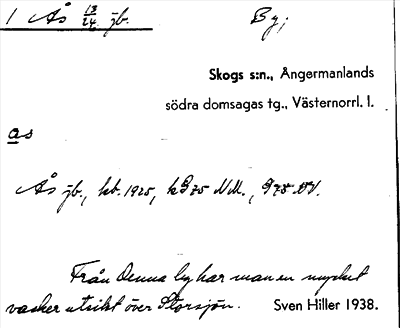 1 Ås 13/24 jb. By;
Skogs s:n., Ångermanlands
södra domsagas tg., Västernorrl. l.
ås
Ås jb., kb. 1925,
Från denna by har man en mycket
vacker utsikt över Storsjön. Sven Hiller 1938.